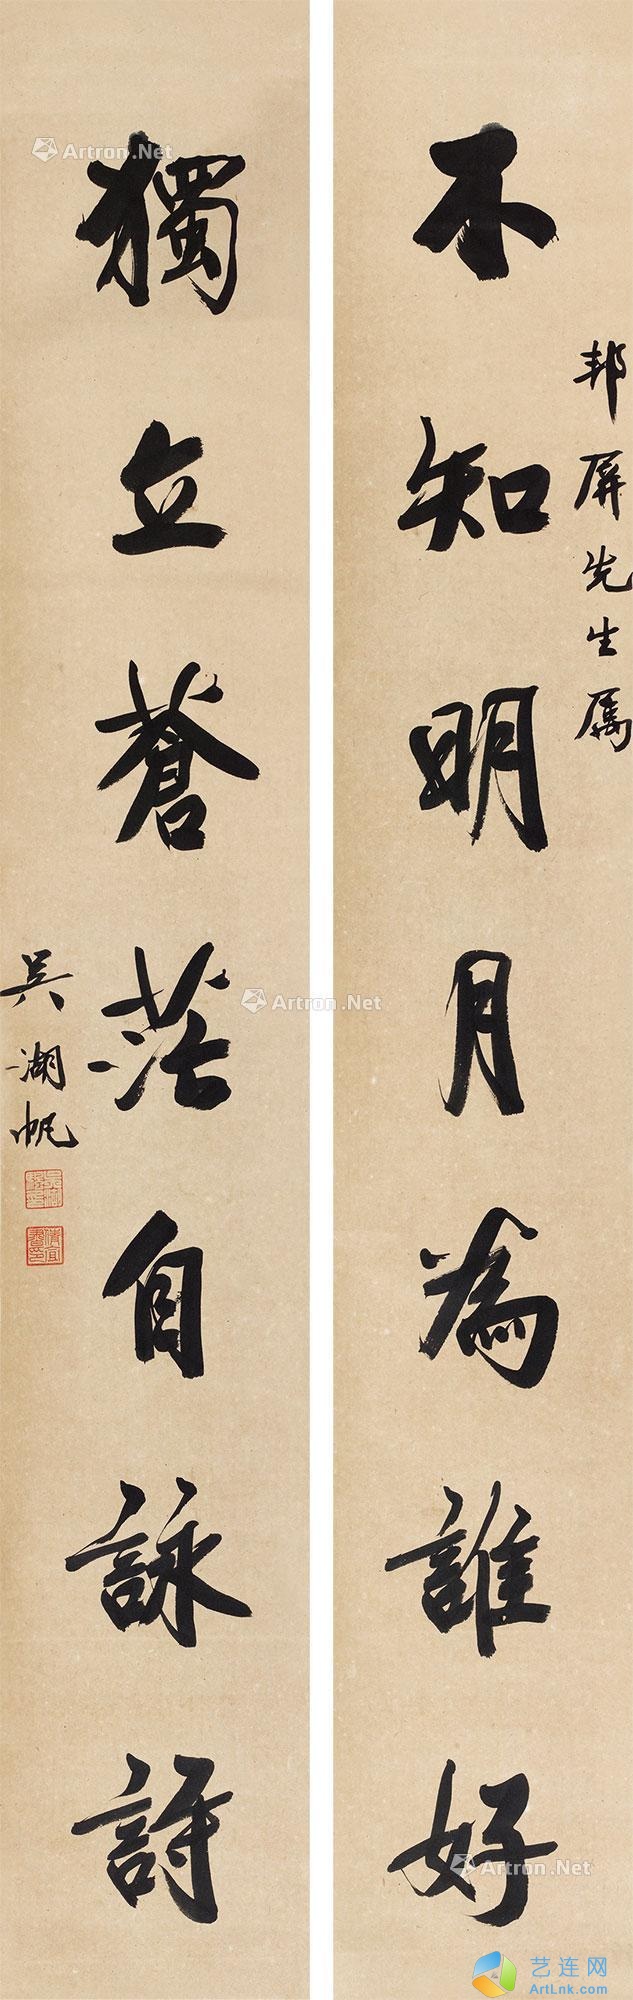 不知明月為誰好
邦屏先生属
獨立蒼茫自詠詩
吴湖帆
Artron.Net
Artron.Net
Artron.Net
Artron.Net
艺连网
ArtLnk.com